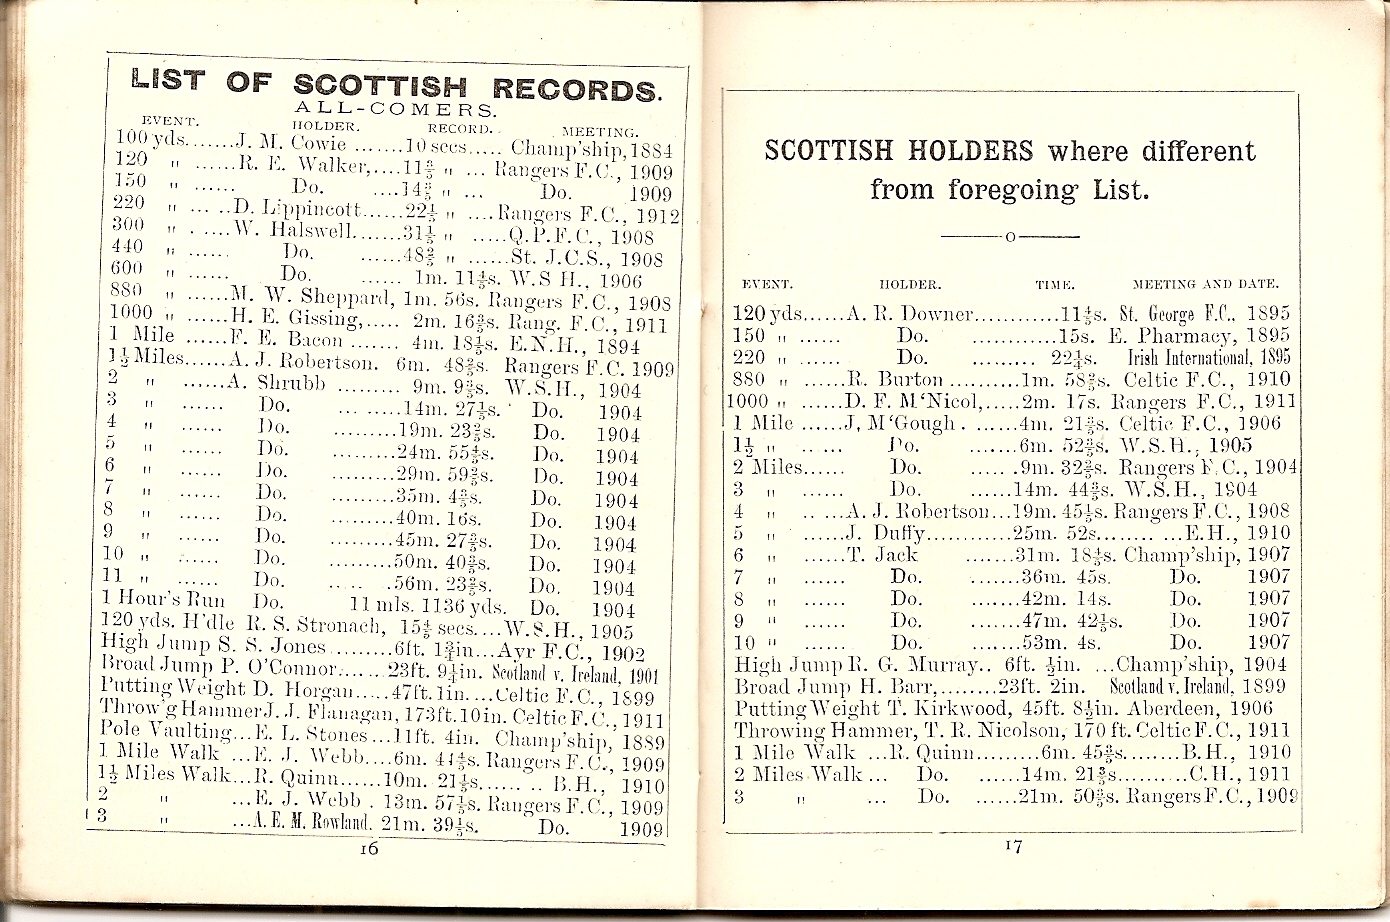 LIST OF SCOTTISH RECORDS.
ALL-COMERS.
EVENT. HOLDER. RECORD. MEETING.
100 yds.......J. M. Cowie .......10 secs..... Champ'ship, 1884
120 " ......R. E. Walker,....11 " ... Rangers F.C., 1909
150 " ...... Do. ....14 " ... Do. 1909
220 " ... ...D. Lippincott......22⅕ " ....Rangers F.C., 1912
300 " . .....W. Halswell.......31⅕ " .....Q.P.F.C., 1908
440 " ...... Do. ......48 " ......St. J.C.S., 1908
600 " ...... Do. ...... 1m. 11⅘s. W.S H., 1906
880 " ......M. W. Sheppard, 1m. 56s. Rangers F.C., 1908
1000 " ......H. E. Gissing,..... 2m. 16s. Rang. F.C., 1911
1 Mile ......F. E. Bacon ....... 4m. 18⅕s. E.N.H., 1894
1½ Miles......A. J. Robertson. 6m. 48s. Rangers F.C. 1909
2 " ......A. Shrubb ......... 9m. 9s. W.S.H., 1904
3 " ...... Do. ... ......14m. 27⅕s. Do. 1904
4 " ...... Do. .........19m. 23s. Do. 1904
5 " ...... Do. .........24m. 55⅘s. Do. 1904
6 " ...... Do. .........29m. 59s. Do. 1904
7 " ...... Do. .........35m. 4s. Do. 1904
8 " ...... Do. .........40m. 16s. Do. 1904
9 " ...... Do. .........45m. 27s. Do. 1904
10 " ...... Do. .........50m. 40s. Do. 1904
11 " ...... Do. .........56m. 23s. Do. 1904
1 Hour's Run Do. 11 mls. 1136 yds. Do. 1904
120 yds. H'dle R. S. Stronach, 15⅘ secs....W.S.H., 1905
High Jump S. S. Jones........6ft. 1in...Ayr F.C., 1902
Broad Jump P. O'Connor.......23ft. 9in. Scotland v. Ireland, 1901
Putting Weight D. Horgan.....47ft. 1in....Celtic F.C., 1899
Throw'g Hammer J. J. Flanagan, 173ft. 10in. Celtic F.C., 1911
Pole Vaulting...E. L. Stones...11ft. 4in. Champ'ship, 1889
1 Mile Walk ...E. J. Webb....6m. 41⅘s. Rangers F.C., 1909
1½ Miles Walk...R. Quinn.....10m. 21⅕s...... .. B.H., 1910
2 " ...E. J. Webb . 13m. 57⅕s. Rangers F.C., 1909
3 " ...A. E. M. Rowland. 21m. 39⅕s. Do. 1909
16
SCOTTISH HOLDERS where different
from foregoing List.
EVENT. HOLDER. TIME. MEETING AND DATE.
120 yds......A. R. Downer............11⅘s. St. George F.C., 1895
150 " ...... Do. ............15s. E. Pharmacy, 1895
220 " ...... Do. ......... 22s. Irish International, 1895
880 " ......R. Burton ..........1m. 58s. Celtic F.C., 1910
1000 " ......D. F. M'Nicol,.....2m. 17s. Rangers F.C., 1911
1 Mile ......J, M'Gough . ......4m. 21s. Celtic F.C., 1906
1½ " .. ... Do. .......6m. 52s. W.S.H., 1905
2 Miles...... Do. ..... .9m. 32s. Rangers F.C., 1904
3 " ...... Do. ......14m. 44s. W.S.H., 1904
4 " .. ...A. J. Robertson...19m. 45⅕s. Rangers F.C., 1908
5 " ......J. Duffy............25m. 52s........ ...E.H., 1910
6 " ......T. Jack .......31m. 18⅘s. Champ'ship, 1907
7 " ...... Do. .......36m. 45s. Do. 1907
8 " ...... Do. .......42m. 14s. Do. 1907
9 " ...... Do. .......47m. 42⅕s. Do. 1907
10 " ...... Do. .......53m. 4s. Do. 1907
High Jump R. G. Murray.. 6ft. ½in. ...Champ'ship, 1904
Broad Jump H. Barr,........23ft. 2in. Scotland v. Ireland, 1899
Putting Weight T. Kirkwood, 45ft. 8½in. Aberdeen, 1906
Throwing Hammer, T. R. Nicolson, 170 ft. Celtic F.C., 1911
1 Mile Walk ...R. Quinn.........6m. 45s........B.H., 1910
2 Miles Walk... Do. ......14m. 21s.........C.H., 1911
3 " ... Do. ......21m. 50s. Rangers F.C., 1909
17